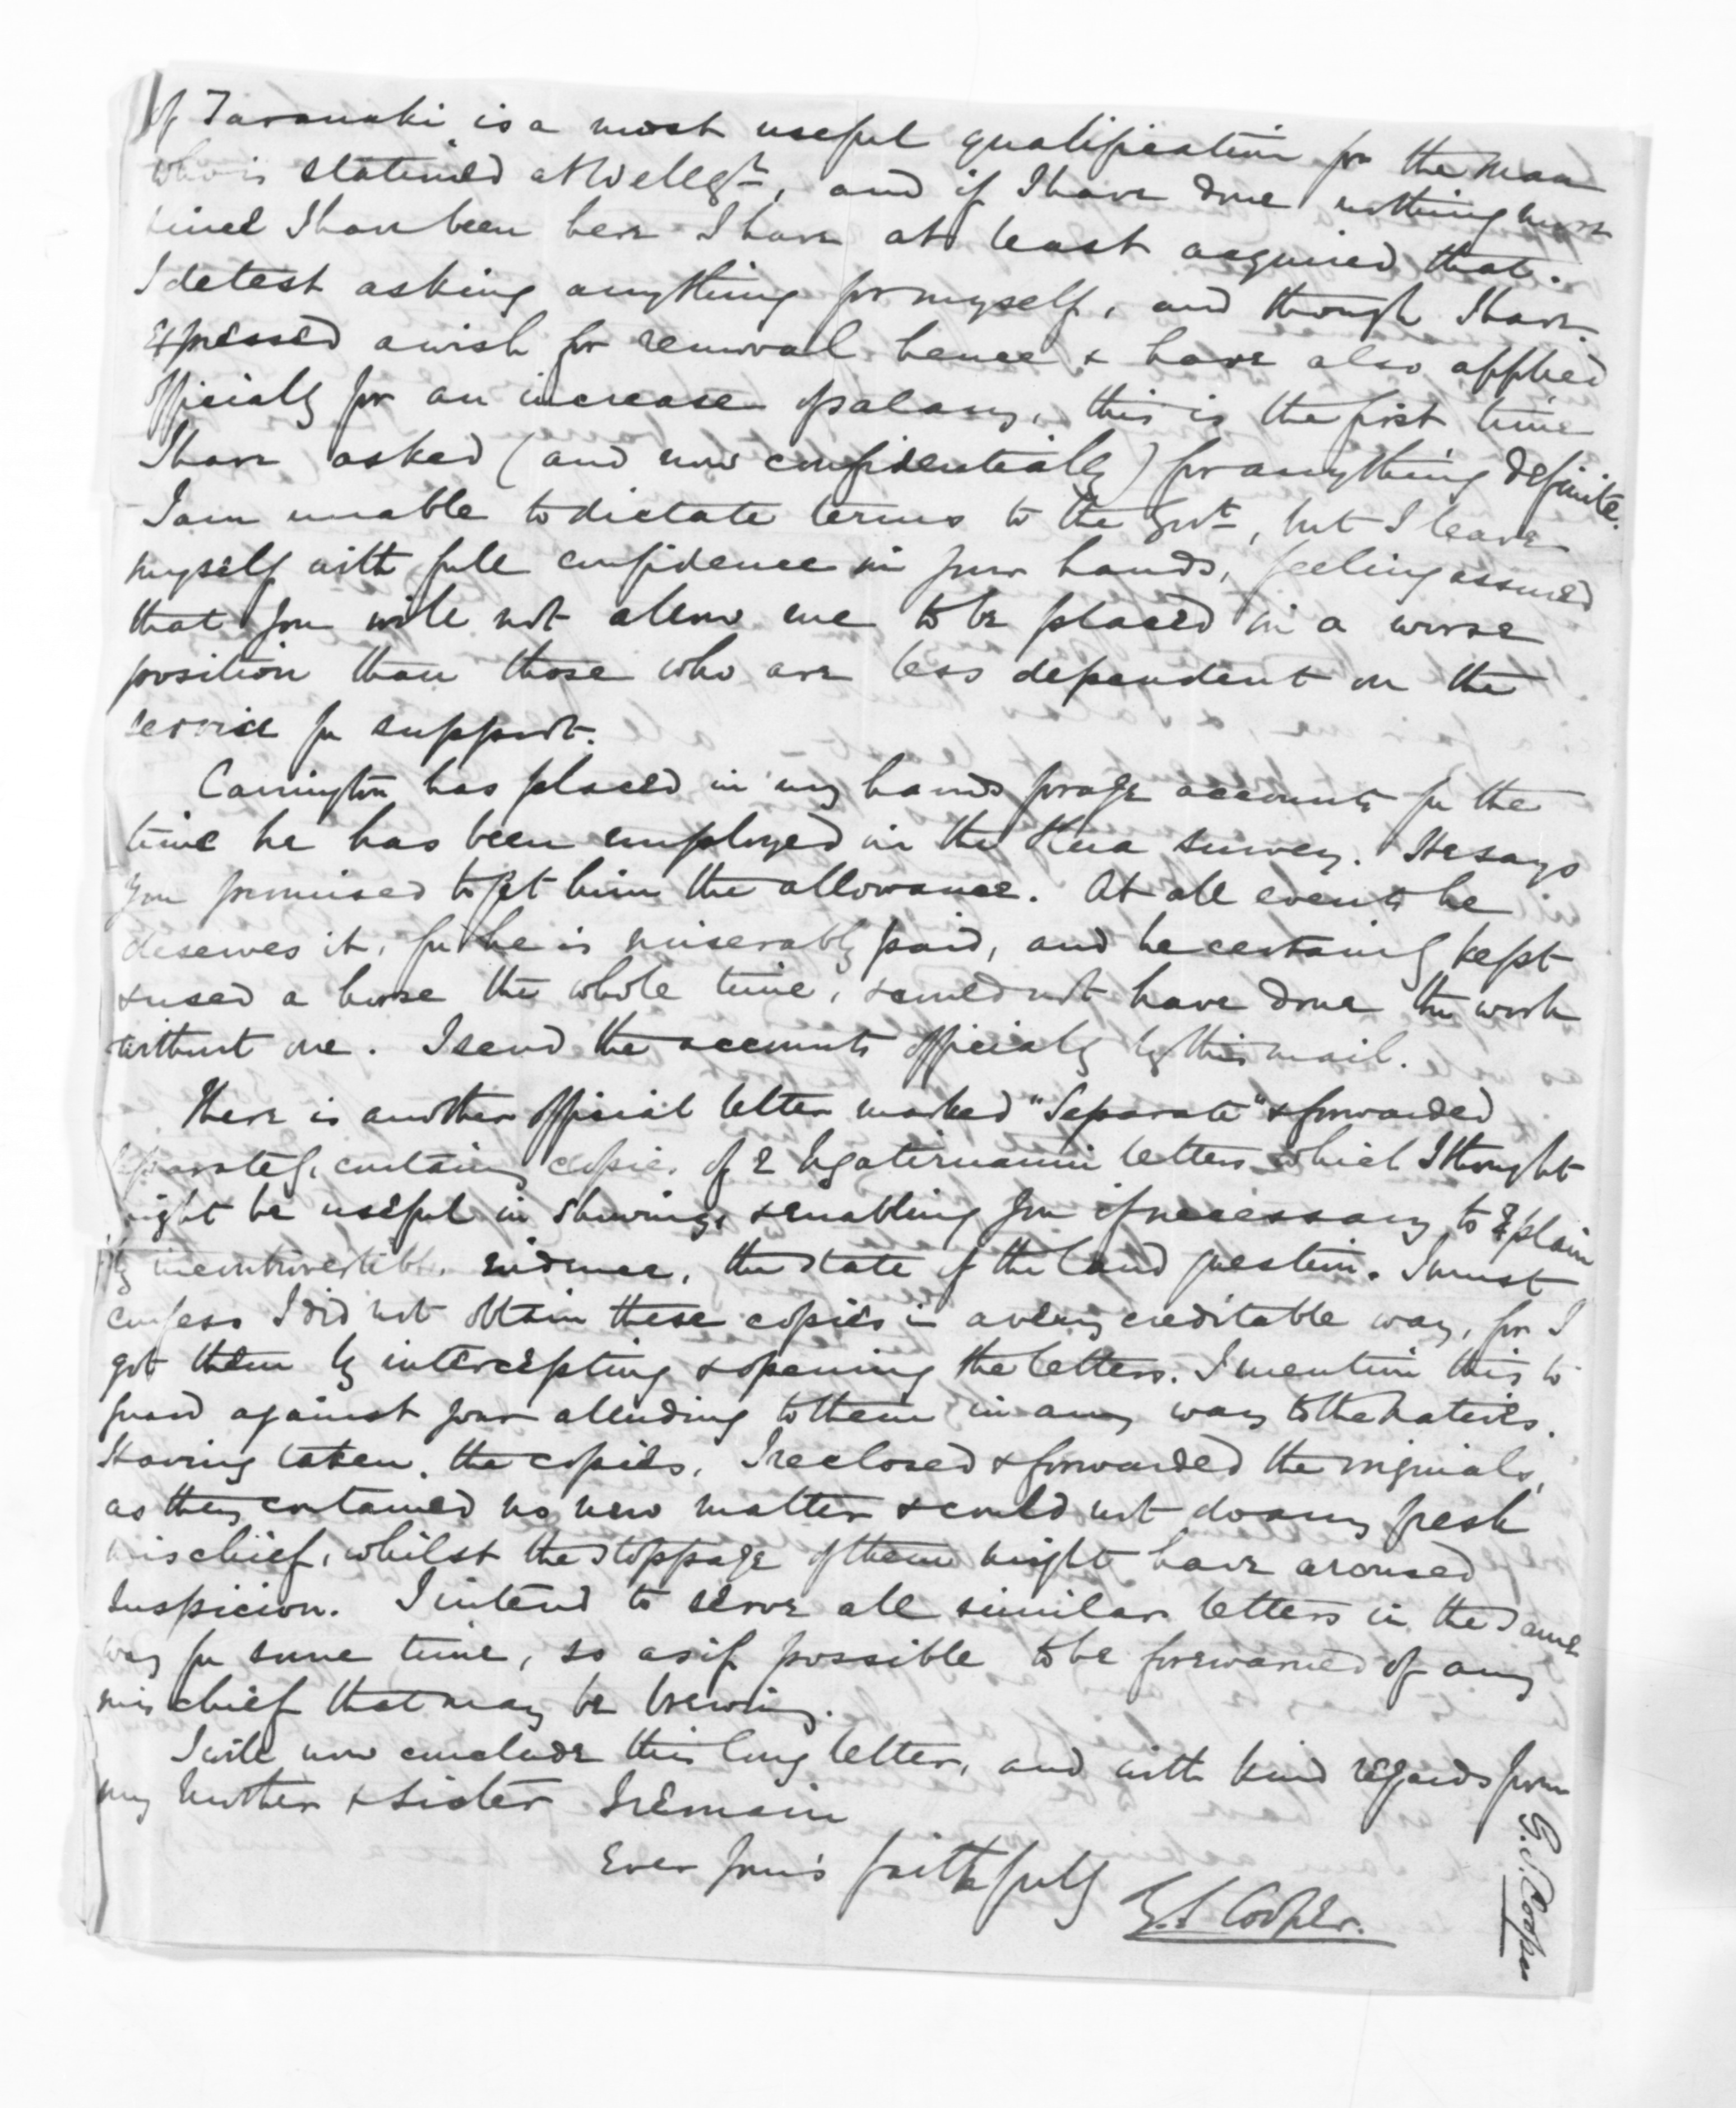 of Taranaki is a most useful qualification for the man
who is stationed at Wellgtn, and if I have done nothing more
since I have been here I have at least acquired that.
I detest asking anything for myself, and though I have
expressed a wish for removal hence & have also applied
officially for an increase of salary, this is the first time
I have asked (and now confidentially) for anything definite.
I am unable to dictate terms to the Govt, but I leave
myself with full confidence in your hands, feeling assured
that you will not allow me to be placed in a worse
position than those who are less dependent on the
service for support.
Carrington has placed in my hands forage accounts for the
time he has been employed in the Hua survey. He says
you promised to get him the allowance. At all events he
deserves it, for he is miserably paid, and he certainly kept
& used a horse the whole time, & could not have done the work
without one. I send the accounts officially by this mail.
There is another official letter marked "Separate" & forwarded
separately, containing copies of 2 Ngatiruanui letters which I thought
might be useful in showing, & enabling you if necessary to explain
by incontrovertible evidence, the state of the land question. I must
confess I did not obtain these copies in a very creditable way, for I
got them by intercepting & opening the letters. I mention this to
guard against your alluding to them in any way to the natives.
Having taken the copies, I reclosed & forwarded the originals,
as they contained no new matter & could not do any fresh
mischief, whilst the stoppage of them might have aroused
suspicion. I intend to serve all similar letters in the same
way for some time, so as if possible to be forewarned of any
mischief that may be brewing.
I will now conclude this long letter, and with kind regards from
my mother & sister I remain
Ever yours faithfully
G. S. Cooper.
G. S. Cooper